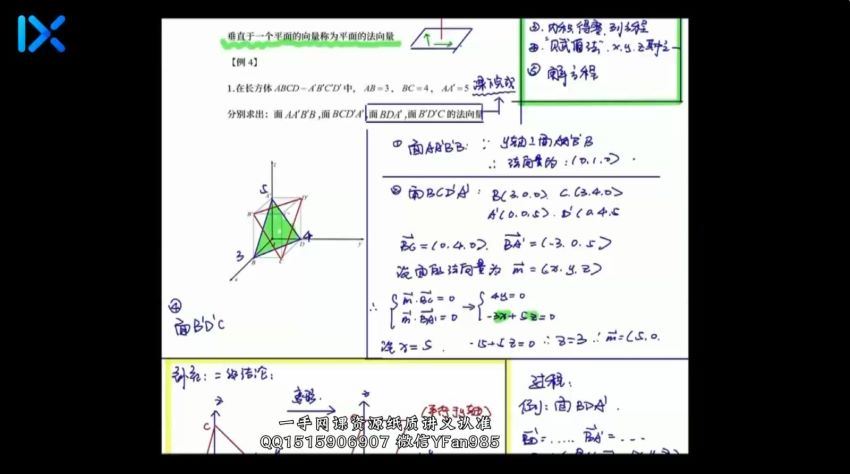 IX
垂直于一个平面的向量称为平面的法向量
【例4】
1.在长方体ABCD-A'B'C'D'中, AB=3, BC=4, AA'=5 课下完成
分别求出:面AA'B'B,面BCD'A',面BDA',面B'D'C的法向量
②. 内积得零, 列方程
③. "赋值法".
⑤ 解方程
① 面AA'B'B: ∵ y轴⊥面AA'B'B
∴ 法向量为:(0.1.0)
② 面BCD'A': B(3.0.0) C.(3.4.0)
A'(0.0.5). D'(0.4.5
BC=(0.4.0). BA'=(-3.0.5)
设面的法向量为 m=(x.y.z)
∴ m·BC=0 → 4y=0
m·BA'=0 -3x+5z=0
设x=5. -15+5z=0 ∴z=3 ∴m=(5.0.
5
4
3
④
面B'D'C
二级结论:
z
C
过程:
例: 面BDA'.
BD=.... BA'=...
一手网课资源纸质讲义认准
QQ1515906907 微信YFan985